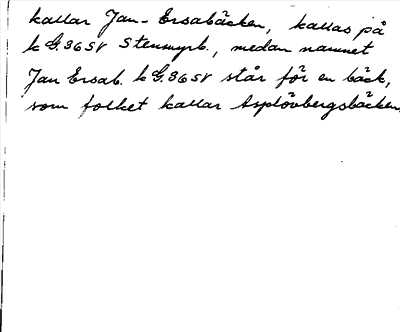 kallar Jan-Ersabäcken, kallas på
k G.36 SV Stenmyrb., medan namnet
Jan Ersab. k G.36 SV står för en bäck,
som folket kallar Asplövbergsbäcken.